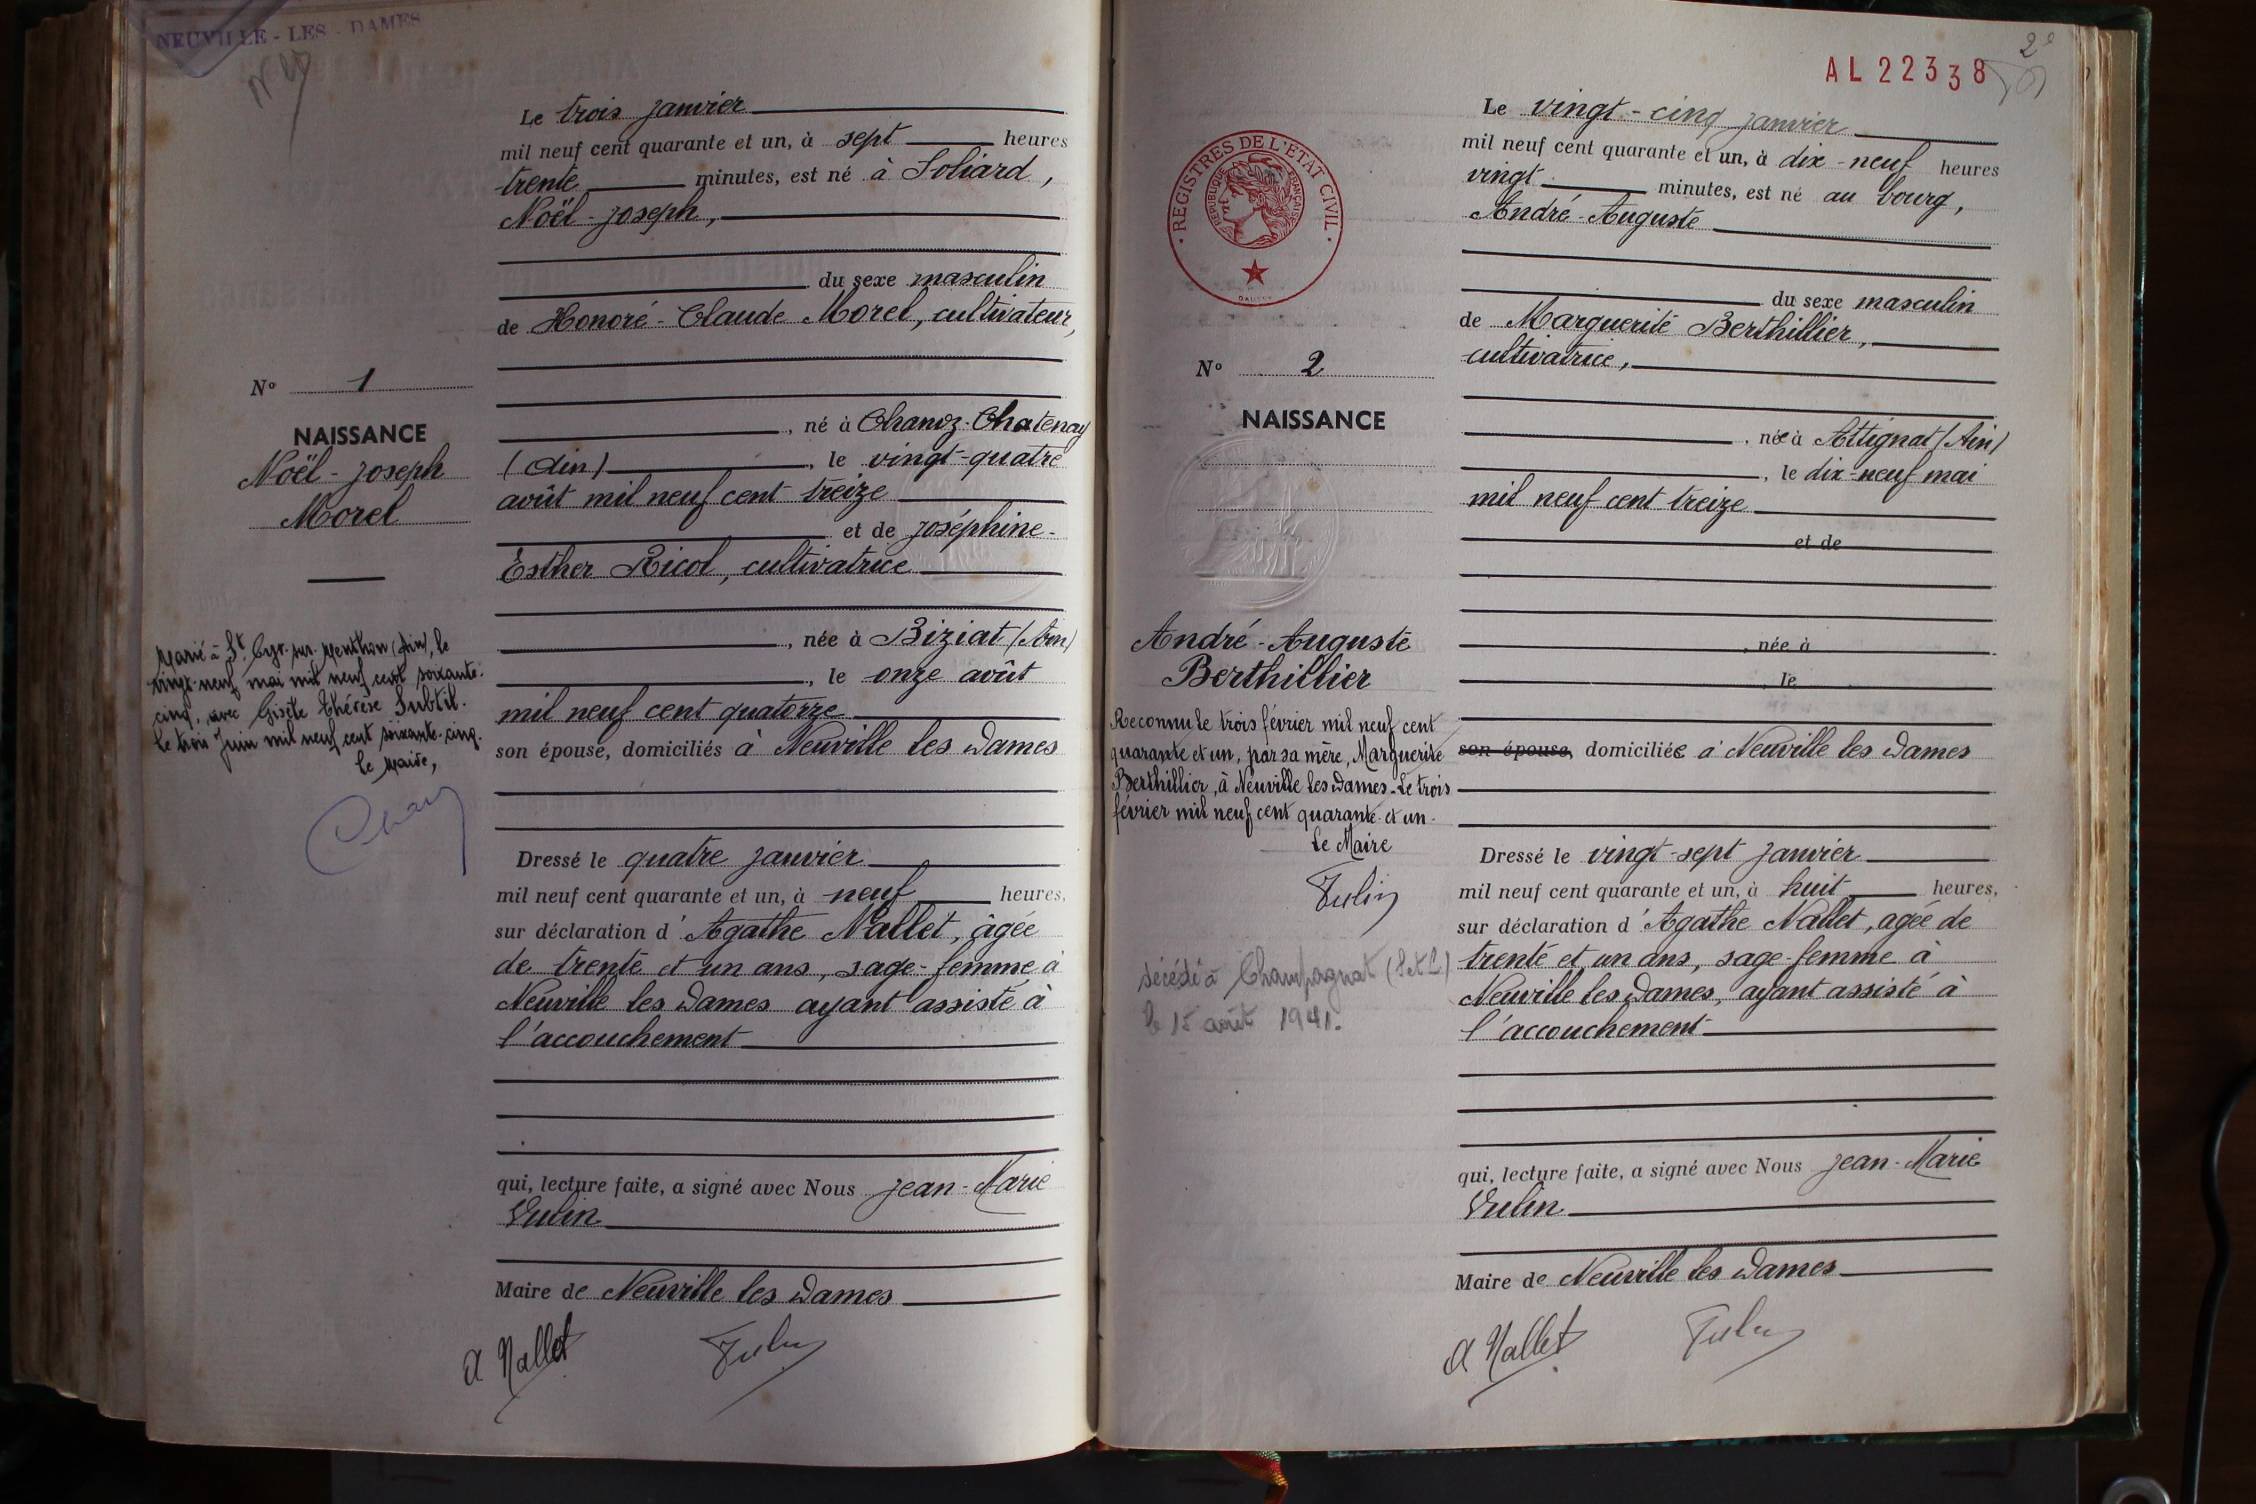 NEUVILLE - LES - DAMES
Le trois janvier
mil neuf cent quarante et un, à sept heures
trente minutes, est né à Soliard,
Noël-Joseph,
du sexe masculin
de Honoré-Claude Morel, cultivateur,
né à Chanoz-Chatenay
(Ain), le vingt-quatre
août mil neuf cent treize
et de Joséphine-
Esther Ricol, cultivatrice
, née à Biziat (Ain)
, le onze août
mil neuf cent quatorze
son épouse, domiciliés à Neuville les Dames
Dressé le quatre janvier
mil neuf cent quarante et un, à neuf heures,
sur déclaration d'Agathe Nallet, âgée
de trente et un ans, sage-femme à
Neuville les Dames ayant assisté à
l'accouchement
qui, lecture faite, a signé avec Nous Jean-Marie
Vulin
Maire de Neuville les Dames
A Nallet Vulin
N° 1
NAISSANCE
Noël-Joseph
Morel
Marié à St Cyr-sur-Menthon (Ain), le
vingt-neuf mai mil neuf cent soixante-
cinq, avec Gisèle Thérèse Subtil.
Le trois Juin mil neuf cent soixante-cinq.
Le Maire,
AL 22338
2e
REGISTRES DE L'ETAT CIVIL
REPUBLIQUE FRANÇAISE
Le vingt-cinq janvier
mil neuf cent quarante et un, à dix-neuf heures
vingt minutes, est né au bourg,
André-Auguste
du sexe masculin
de Marguerite Berthillier,
cultivatrice,
, née à Attignat (Ain)
, le dix-neuf mai
mil neuf cent treize
et de
, née à
, le
son épouse, domiciliée à Neuville les Dames
Dressé le vingt-sept janvier
mil neuf cent quarante et un, à huit heures,
sur déclaration d'Agathe Nallet, agée de
trente et un ans, sage-femme à
Neuville les Dames, ayant assisté à
l'accouchement
qui, lecture faite, a signé avec Nous Jean-Marie
Vulin
Maire de Neuville les Dames
A Nallet Vulin
N° 2
NAISSANCE
André-Auguste
Berthillier
Reconnu le trois février mil neuf cent
quarante et un, par sa mère, Marguerite
Berthillier, à Neuville les Dames-Le trois
février mil neuf cent quarante et un-
Le Maire
Vulin
décédé à Champagnat (S et L)
le 15 août 1941.